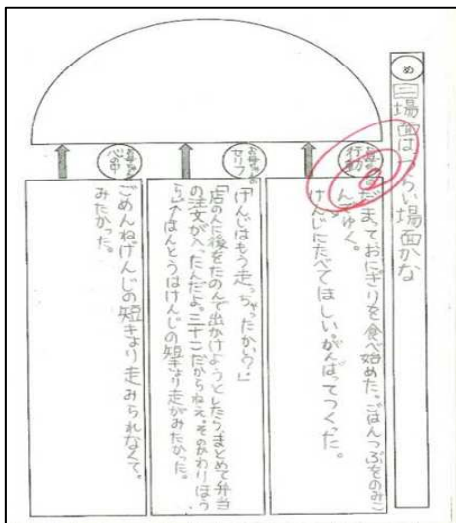 め
三場面は くらい場面かな
お母さんの行動
だまっておにぎりを食べ始めた。ごはんつぶをのみこ
んでゆく。
けんじにたべてほしい。がんばってつくった。
お母さんのセリフ
「けんじはもう走っちゃったかい?」
「店のんに後をたのんで出かけようとしたら、まとめて弁当
の注文が入ったんだよ。三十こだからねえ。そのかわりほう
ほんとうはけんじの短きょり走がみたかった。
お母さんの心の中
ごめんねげんじの短きょり走みられなくて。
みたかった。